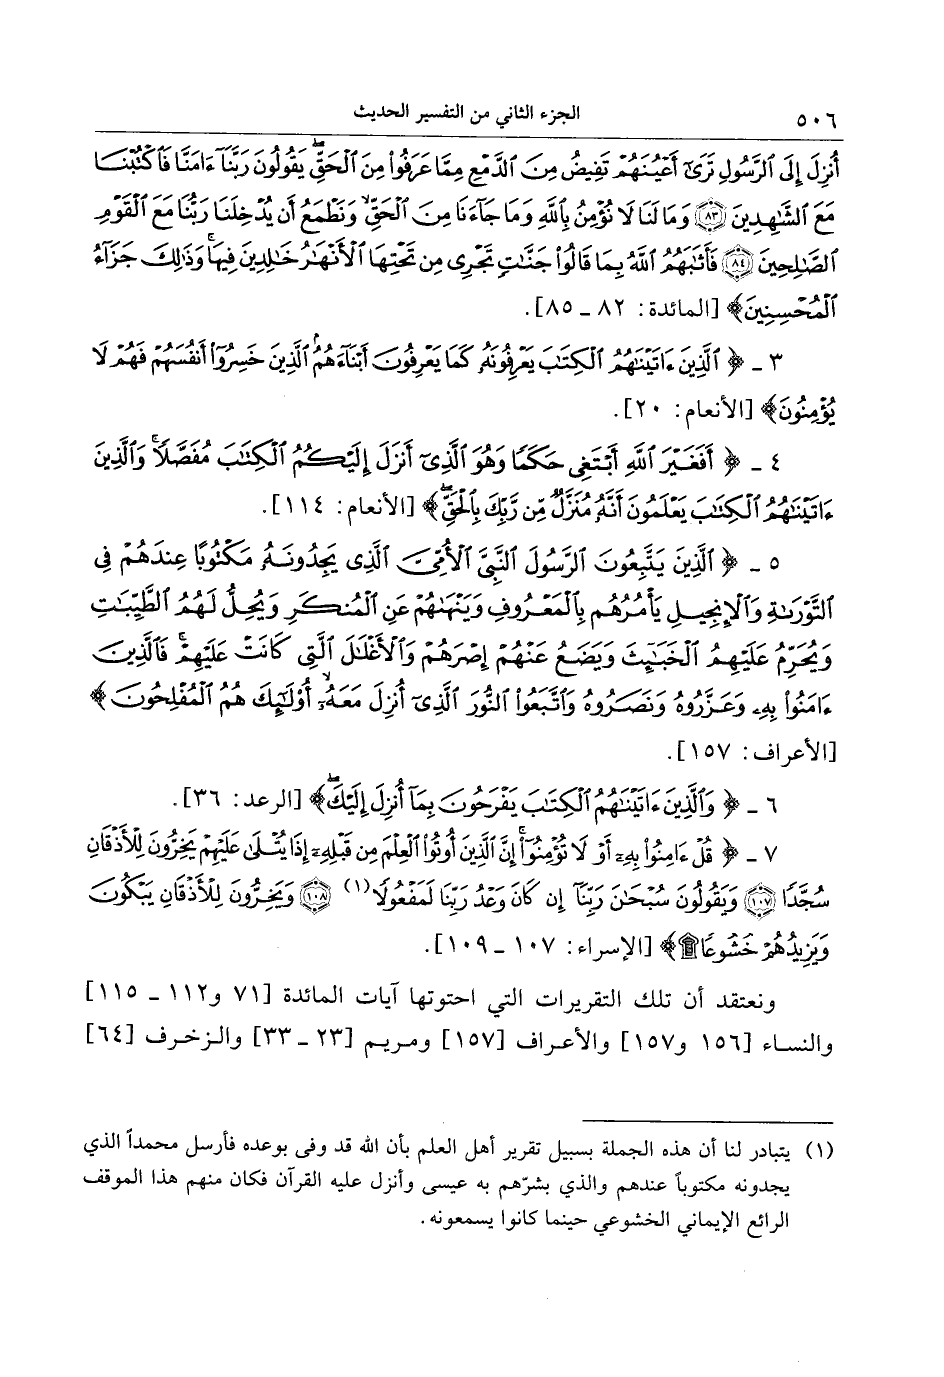 ٥٠٦
الجزء الثاني من التفسير الحديث
أُنزِلَ إِلَى ٱلرَّسُولِ تَرَىٰٓ أَعۡيُنَهُمۡ تَفِيضُ مِنَ ٱلدَّمۡعِ مِمَّا عَرَفُواْ مِنَ ٱلۡحَقِّۖ يَقُولُونَ رَبَّنَآ ءَامَنَّا فَٱكۡتُبۡنَا
مَعَ ٱلشَّٰهِدِينَ ﴿٨٣﴾ وَمَا لَنَا لَا نُؤۡمِنُ بِٱللَّهِ وَمَا جَآءَنَا مِنَ ٱلۡحَقِّ وَنَطۡمَعُ أَن يُدۡخِلَنَا رَبُّنَا مَعَ ٱلۡقَوۡمِ
ٱلصَّٰلِحِينَ ﴿٨٤﴾ فَأَثَٰبَهُمُ ٱللَّهُ بِمَا قَالُواْ جَنَّٰتٖ تَجۡرِي مِن تَحۡتِهَا ٱلۡأَنۡهَٰرُ خَٰلِدِينَ فِيهَاۚ وَذَٰلِكَ جَزَآءُ
ٱلۡمُحۡسِنِينَ﴾ [المائدة: ٨٢ ـ ٨٥].
٣ ـ ﴿ٱلَّذِينَ ءَاتَيۡنَٰهُمُ ٱلۡكِتَٰبَ يَعۡرِفُونَهُۥ كَمَا يَعۡرِفُونَ أَبۡنَآءَهُمُۘ ٱلَّذِينَ خَسِرُوٓاْ أَنفُسَهُمۡ فَهُمۡ لَا
يُؤۡمِنُونَ﴾ [الأنعام: ٢٠].
٤ ـ ﴿أَفَغَيۡرَ ٱللَّهِ أَبۡتَغِي حَكَمٗا وَهُوَ ٱلَّذِيٓ أَنزَلَ إِلَيۡكُمُ ٱلۡكِتَٰبَ مُفَصَّلٗاۚ وَٱلَّذِينَ
ءَاتَيۡنَٰهُمُ ٱلۡكِتَٰبَ يَعۡلَمُونَ أَنَّهُۥ مُنَزَّلٞ مِّن رَّبِّكَ بِٱلۡحَقِّۖ﴾ [الأنعام: ١١٤].
٥ ـ ﴿ٱلَّذِينَ يَتَّبِعُونَ ٱلرَّسُولَ ٱلنَّبِيَّ ٱلۡأُمِّيَّ ٱلَّذِي يَجِدُونَهُۥ مَكۡتُوبًا عِندَهُمۡ فِي
ٱلتَّوۡرَىٰةِ وَٱلۡإِنجِيلِ يَأۡمُرُهُم بِٱلۡمَعۡرُوفِ وَيَنۡهَىٰهُمۡ عَنِ ٱلۡمُنكَرِ وَيُحِلُّ لَهُمُ ٱلطَّيِّبَٰتِ
وَيُحَرِّمُ عَلَيۡهِمُ ٱلۡخَبَٰٓئِثَ وَيَضَعُ عَنۡهُمۡ إِصۡرَهُمۡ وَٱلۡأَغۡلَٰلَ ٱلَّتِي كَانَتۡ عَلَيۡهِمۡۚ فَٱلَّذِينَ
ءَامَنُواْ بِهِۦ وَعَزَّرُوهُ وَنَصَرُوهُ وَٱتَّبَعُواْ ٱلنُّورَ ٱلَّذِيٓ أُنزِلَ مَعَهُۥٓۙ أُوْلَٰٓئِكَ هُمُ ٱلۡمُفۡلِحُونَ﴾
[الأعراف: ١٥٧].
٦ ـ ﴿وَٱلَّذِينَ ءَاتَيۡنَٰهُمُ ٱلۡكِتَٰبَ يَفۡرَحُونَ بِمَآ أُنزِلَ إِلَيۡكَۖ﴾ [الرعد: ٣٦].
٧ ـ ﴿قُلۡ ءَامِنُواْ بِهِۦٓ أَوۡ لَا تُؤۡمِنُوٓاْۚ إِنَّ ٱلَّذِينَ أُوتُواْ ٱلۡعِلۡمَ مِن قَبۡلِهِۦٓ إِذَا يُتۡلَىٰ عَلَيۡهِمۡ يَخِرُّونَ لِلۡأَذۡقَانِ
سُجَّدٗا ﴿١٠٧﴾ وَيَقُولُونَ سُبۡحَٰنَ رَبِّنَآ إِن كَانَ وَعۡدُ رَبِّنَا لَمَفۡعُولٗا (١) ﴿١٠٨﴾ وَيَخِرُّونَ لِلۡأَذۡقَانِ يَبۡكُونَ
وَيَزِيدُهُمۡ خُشُوعٗا۩﴾ [الإسراء: ١٠٧ ـ ١٠٩].
ونعتقد أن تلك التقريرات التي احتوتها آيات المائدة [٧١ و١١٢ ـ ١١٥]
والنساء [١٥٦ و١٥٧] والأعراف [١٥٧] ومريم [٢٣ ـ ٣٣] والزخرف [٦٤]
(١) يتبادر لنا أن هذه الجملة بسبيل تقرير أهل العلم بأن الله قد وفى بوعده فأرسل محمداً الذي
يجدونه مكتوباً عندهم والذي بشرّهم به عيسى وأنزل عليه القرآن فكان منهم هذا الموقف
الرائع الإيماني الخشوعي حينما كانوا يسمعونه.